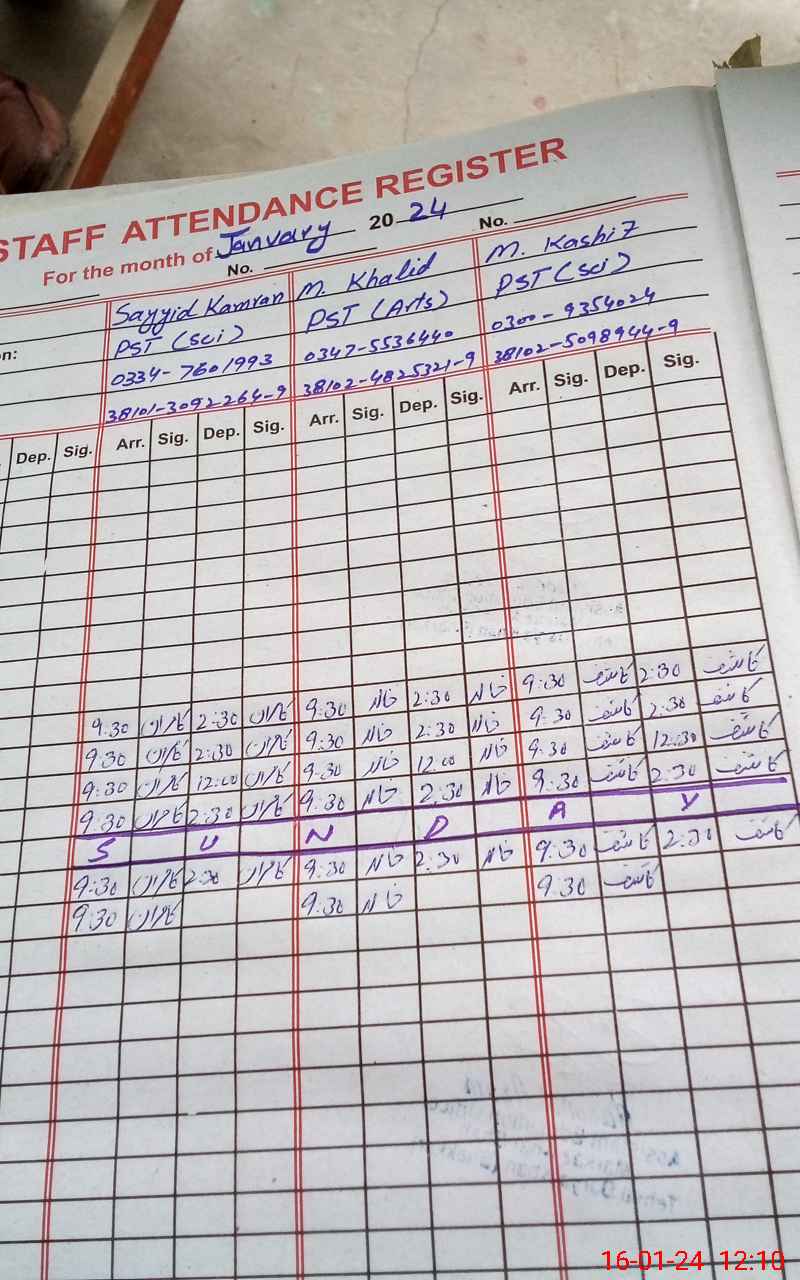 STAFF ATTENDANCE REGISTER
For the month of January 2024
No. No.
Sayyid Kamran M. Khalid M. Kashif
PST (Sci) PST (Arts) PST (Sci)
0334-7601993 0347-5536440 0300-9354024
38101-3092264-9 38102-4825321-9 38102-5098944-9
Dep. Sig. Arr. Sig. Dep. Sig. Arr. Sig. Dep. Sig. Arr. Sig. Dep. Sig.
9:30 کامران 2:30 کامران 9:30 خالد 2:30 خالد 9:30 کاشف 2:30 کاشف
9:30 کامران 2:30 کامران 9:30 خالد 2:30 خالد 9:30 کاشف 2:30 کاشف
9:30 کامران 12:00 کامران 9:30 خالد 12:00 خالد 9:30 کاشف 12:30 کاشف
9:30 کامران 2:30 کامران 9:30 خالد 2:30 خالد 9:30 کاشف 2:30 کاشف
S U N D A Y
9:30 کامران 2:30 کامران 9:30 خالد 2:30 خالد 9:30 کاشف 2:30 کاشف
9:30 کامران 9:30 خالد 9:30 کاشف
16-01-24 12:10